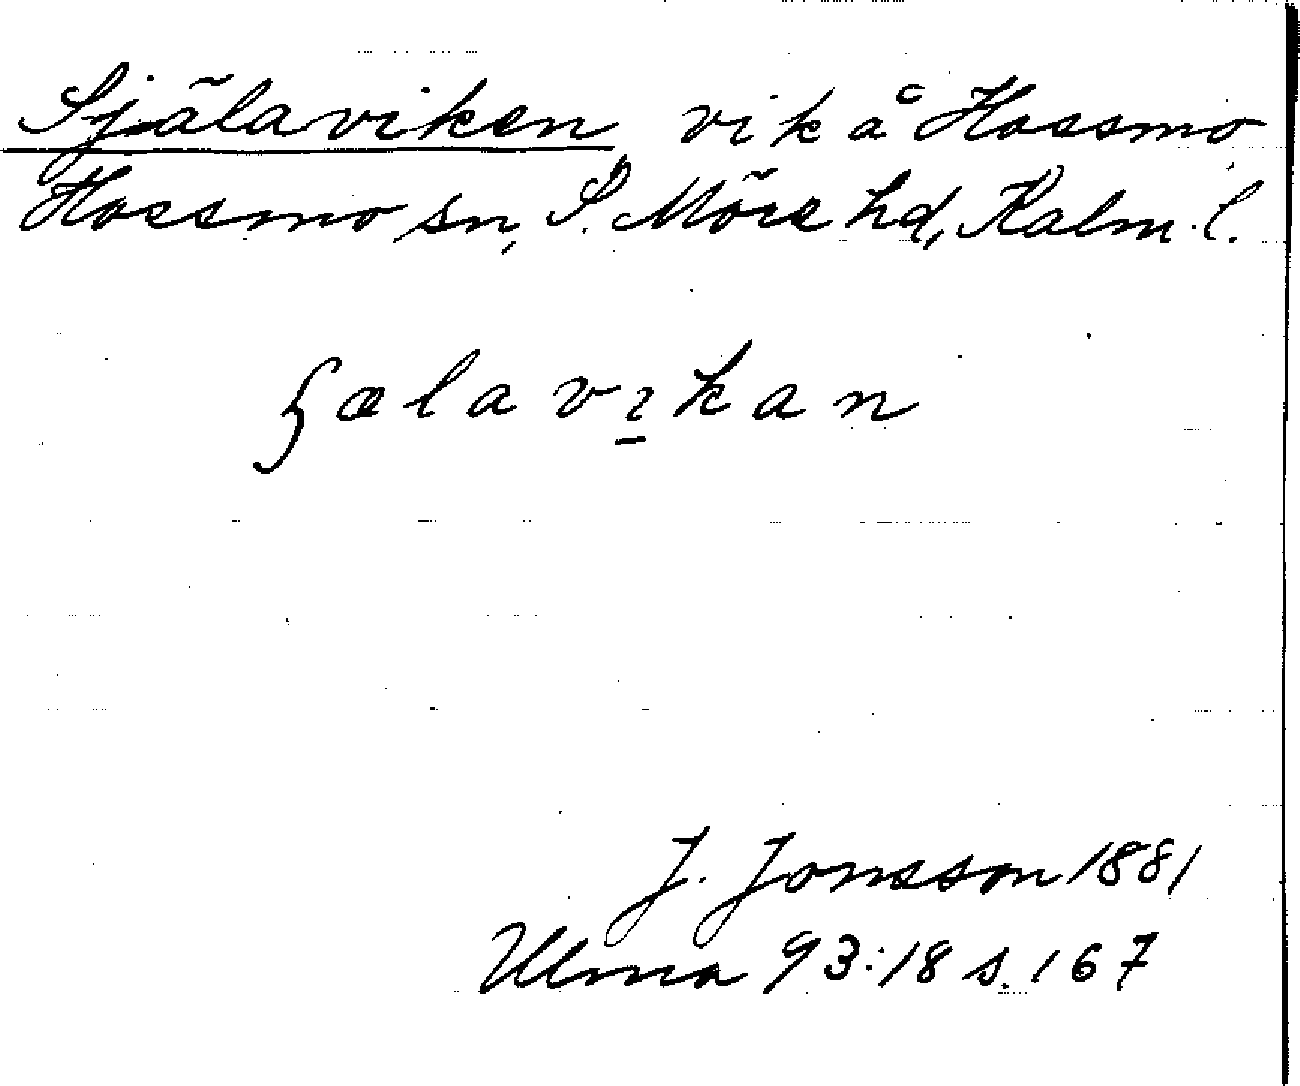 Själaviken vik å Hossmo
Hossmo sn, S. Möre hd, Kalm. l.
ʃælavɿ̱kan
J. Jonsson 1881
Ulma 93:18 s. 167